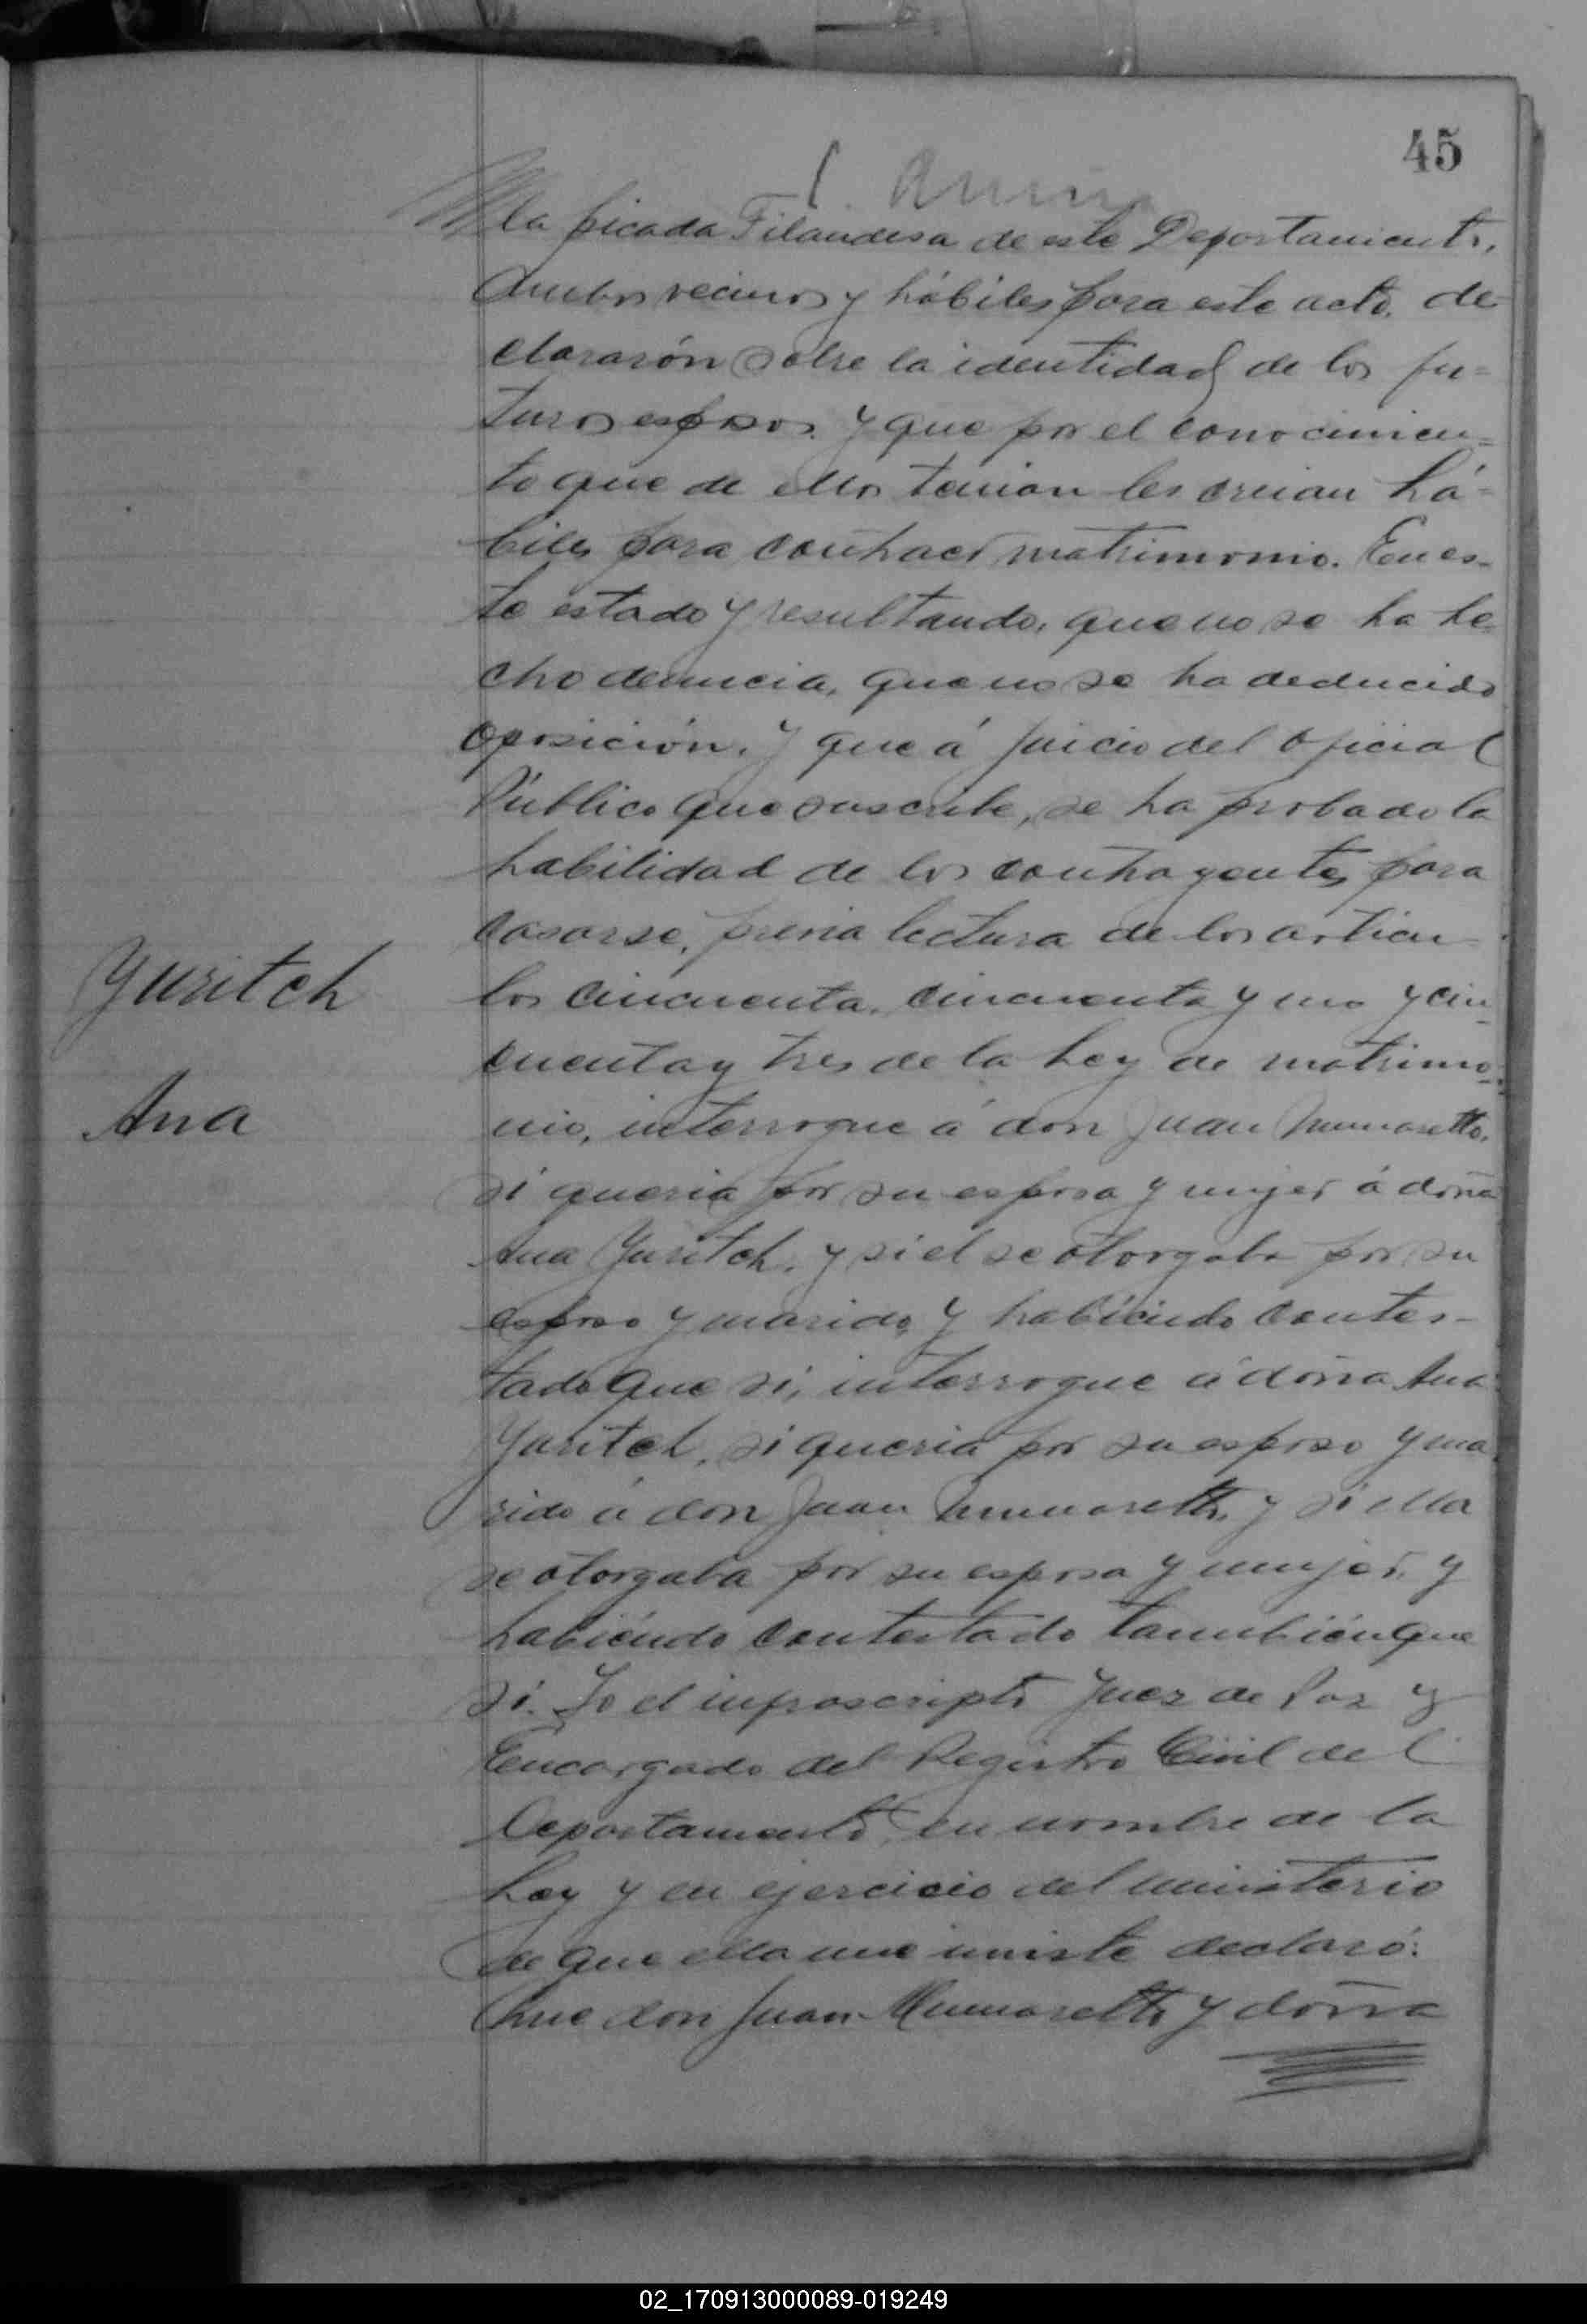 45
la picada Filandesa de este Departamento,
Ambos vecinos y hábiles para este acto, de-
clararón sobre la identidad de los fu=
turos esposos. y que por el conocimien=
to que de ellos tenian les creian há=
biles para contraer matrimonio. En es-
te estado y resultando, que no se ha he
cho denuncia, que no se ha deducido
oposición, y que á juicio del oficial
Público que suscribe, se ha probado la
habilidad de los contrayentes para
casarse, previa lectura de los articu-
los cincuenta, cincuenta y uno y cin
cuenta y tres de la Ley de matrimo-
Yuritch
Ana
nio, interrogue á don Juan Munaretto,
si queria por su esposa y mujer á doña
Ana Yuritch, y si el se otorgaba por su
esposo y marido, y habiendo contes-
tado que si, interrogue á doña Ana
Yuritch, si queria por su esposo y ma
rido á don Juan Munaretto, y si ella
se otorgaba por su esposa y mujer, y
habiéndo contestado tambiénque
si. Yo el infrascripto Juez de Paz y
Encargado del Registro Civil del
Departamento, en nombre de la
Ley y en ejercicio del ministerio
de que ella me inviste declaró:
Que don Juan Munaretto y doña
02_170913000089-019249